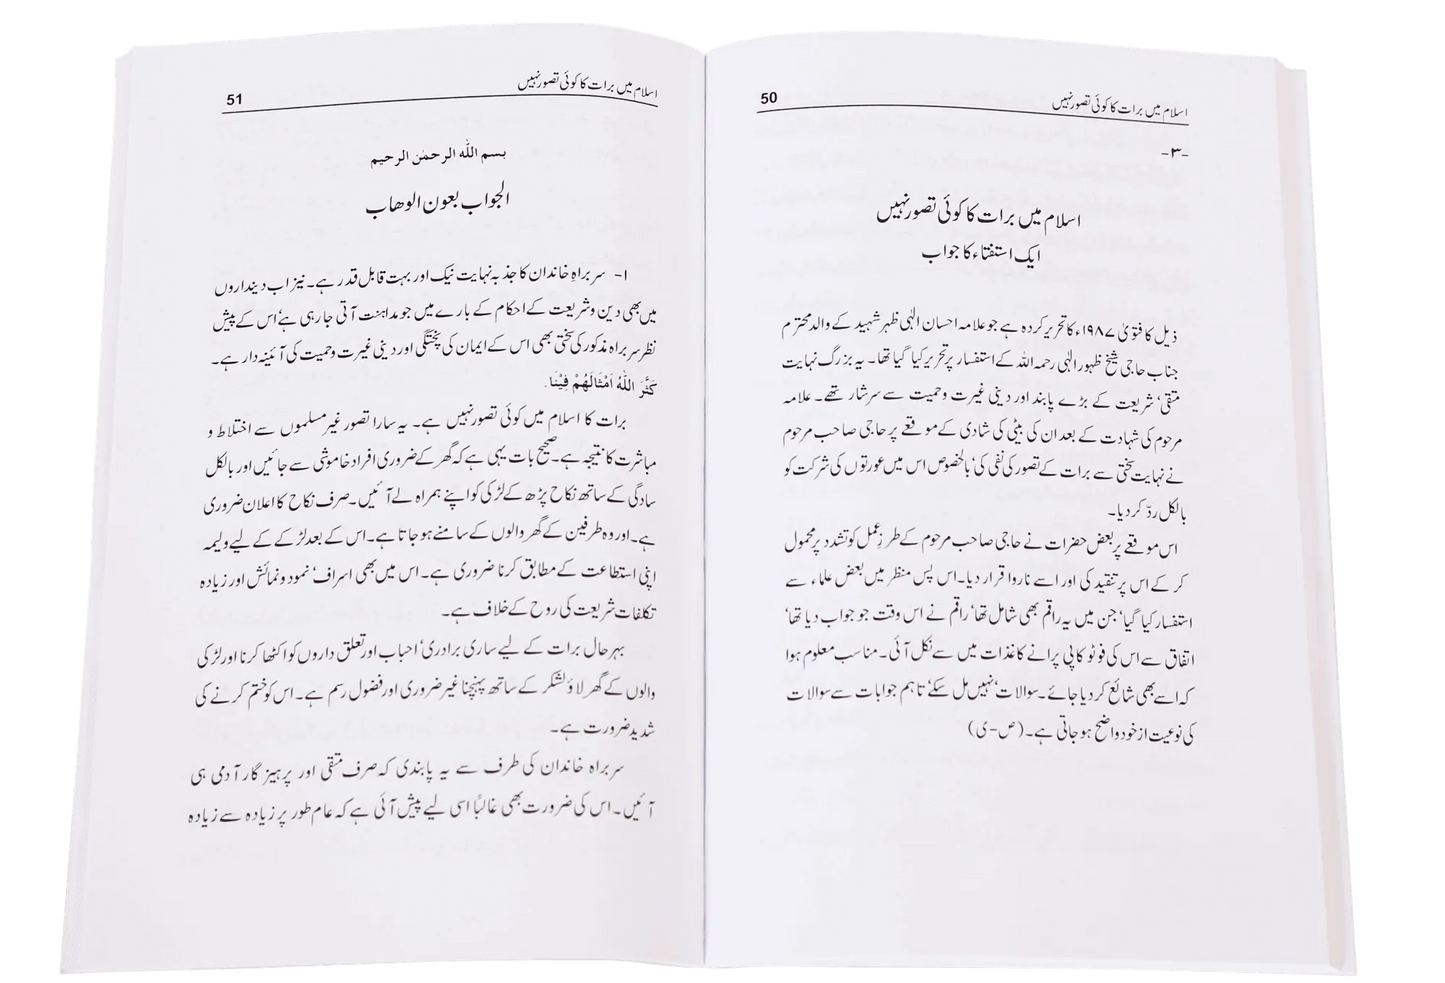 اسلام میں برات کا کوئی تصور نہیں 50
-۳-
اسلام میں برات کا کوئی تصور نہیں
ایک استفتاء کا جواب
ذیل کا فتویٰ ۱۹۸۷ء کا تحریر کردہ ہے جو علامہ احسان الٰہی ظہیر شہید کے والد محترم
جناب حاجی شیخ ظہور الٰہی رحمہ اللہ کے استفسار پر تحریر کیا گیا تھا۔ یہ بزرگ نہایت
متقی‘ شریعت کے بڑے پابند اور دینی غیرت وحمیت سے سرشار تھے۔ علامہ
مرحوم کی شہادت کے بعد ان کی بیٹی کی شادی کے موقعے پر حاجی صاحب مرحوم
نے نہایت سختی سے برات کے تصور کی نفی کی‘ بالخصوص اس میں عورتوں کی شرکت کو
بالکل ردّ کر دیا۔
اس موقعے پر بعض حضرات نے حاجی صاحب مرحوم کے طرزِ عمل کو تشدد پر محمول
کر کے اس پر تنقید کی اور اسے ناروا قرار دیا۔اس پس منظر میں بعض علماء سے
استفسار کیا گیا‘ جن میں یہ راقم بھی شامل تھا‘ راقم نے اس وقت جو جواب دیا تھا‘
اتفاق سے اس کی فوٹو کاپی پرانے کاغذات میں سے نکل آئی۔ مناسب معلوم ہوا
کہ اسے بھی شائع کر دیا جائے۔ سوالات‘ نہیں مل سکے‘ تاہم جوابات سے سوالات
کی نوعیت از خود واضح ہو جاتی ہے۔ (ص-ی)
اسلام میں برات کا کوئی تصور نہیں 51
بسم اللّٰہ الرحمٰن الرحیم
الجواب بعون الوھاب
۱- سربراہِ خاندان کا جذبہ نہایت نیک اور بہت قابل قدر ہے۔ نیز اب دینداروں
میں بھی دین وشریعت کے احکام کے بارے میں جو مداہنت آتی جا رہی ہے‘ اس کے پیش
نظر سربراہ مذکور کی سختی بھی اس کے ایمان کی پختگی اور دینی غیرت وحمیت کی آئینہ دار ہے۔
كَثَّرَ اللّٰهُ اَمْثَالَهُمْ فِيْنَا.
برات کا اسلام میں کوئی تصور نہیں ہے۔ یہ سارا تصور غیر مسلموں سے اختلاط و
مباشرت کا نتیجہ ہے۔ صحیح بات یہی ہے کہ گھر کے ضروری افراد خاموشی سے جائیں اور بالکل
سادگی کے ساتھ نکاح پڑھ کے لڑکی کو اپنے ہمراہ لے آئیں۔ صرف نکاح کا اعلان ضروری
ہے۔ اور وہ طرفین کے گھر والوں کے سامنے ہو جاتا ہے۔ اس کے بعد لڑکے کے لیے ولیمہ
اپنی استطاعت کے مطابق کرنا ضروری ہے۔ اس میں بھی اسراف‘ نمود و نمائش اور زیادہ
تکلفات شریعت کی روح کے خلاف ہے۔
بہرحال برات کے لیے ساری برادری‘ احباب اور تعلق داروں کو اکٹھا کرنا اور لڑکی
والوں کے گھر لاؤ لشکر کے ساتھ پہنچنا غیر ضروری اور فضول رسم ہے۔ اس کو ختم کرنے کی
شدید ضرورت ہے۔
سربراہ خاندان کی طرف سے یہ پابندی کہ صرف متقی اور پرہیز گار آدمی ہی
آئیں۔ اس کی ضرورت بھی غالباً اسی لیے پیش آئی ہے کہ عام طور پر زیادہ سے زیادہ